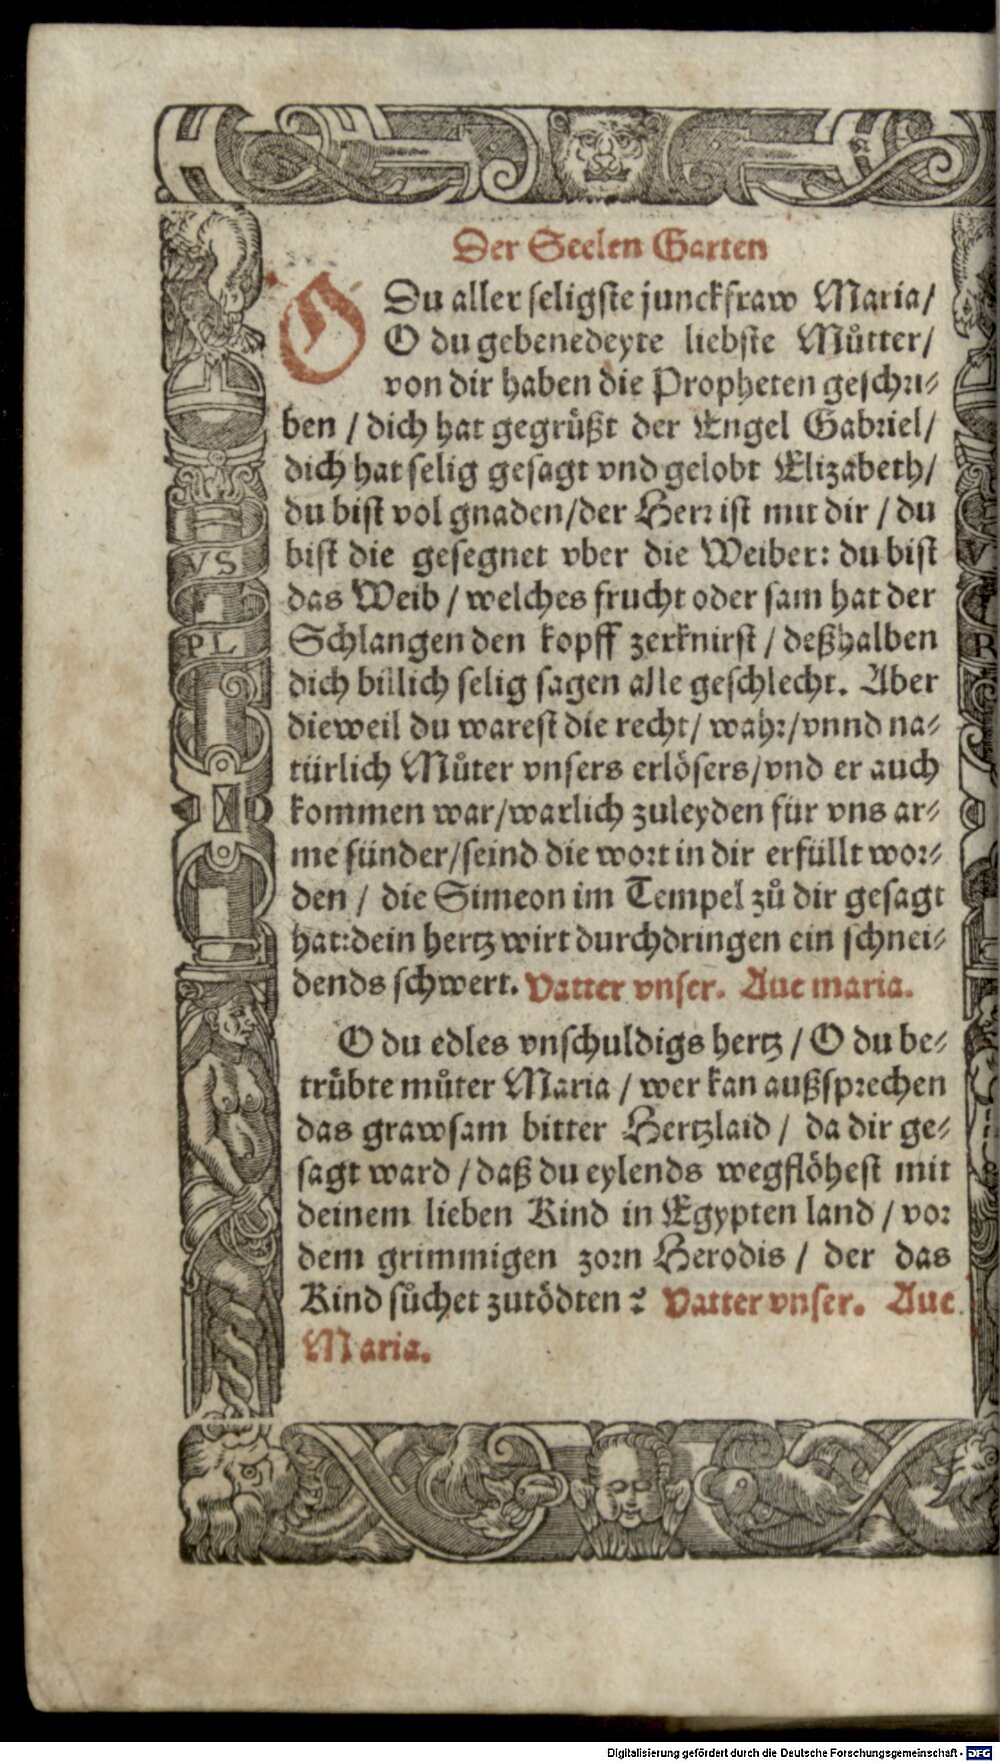 Der Seelen Garten
O Du aller seligste junckfraw Maria/
O du gebenedeyte liebste Můtter/
von dir haben die Propheten geschri-
ben / dich hat gegrüßt der Engel Gabriel/
dich hat selig gesagt vnd gelobt Elizabeth/
du bist vol gnaden/der Herr ist mit dir / du
bist die gesegnet vber die Weiber: du bist
das Weib / welches frucht oder sam hat der
Schlangen den kopff zerknirst / deßhalben
dich billich selig sagen alle geschlecht. Aber
dieweil du warest die recht/ wahr/vnnd na-
türlich Můter vnsers erlösers/vnd er auch
kommen war/warlich zuleyden für vns ar-
me sünder/seind die wort in dir erfüllt wor-
den / die Simeon im Tempel zů dir gesagt
hat:dein hertz wirt durchdringen ein schnei-
dends schwert. Vatter vnser. Aue maria.
O du edles vnschuldigs hertz / O du be-
trübte můter Maria / wer kan außsprechen
das grawsam bitter Hertzlaid / da dir ge-
sagt ward / daß du eylends wegflöhest mit
deinem lieben Kind in Egypten land / vor
dem grimmigen zorn Herodis / der das
Kind sůchet zutödten? Vatter vnser. Aue
Maria.
VS
PL
V
R
Digitalisierung gefördert durch die Deutsche Forschungsgemeinschaft - DFG